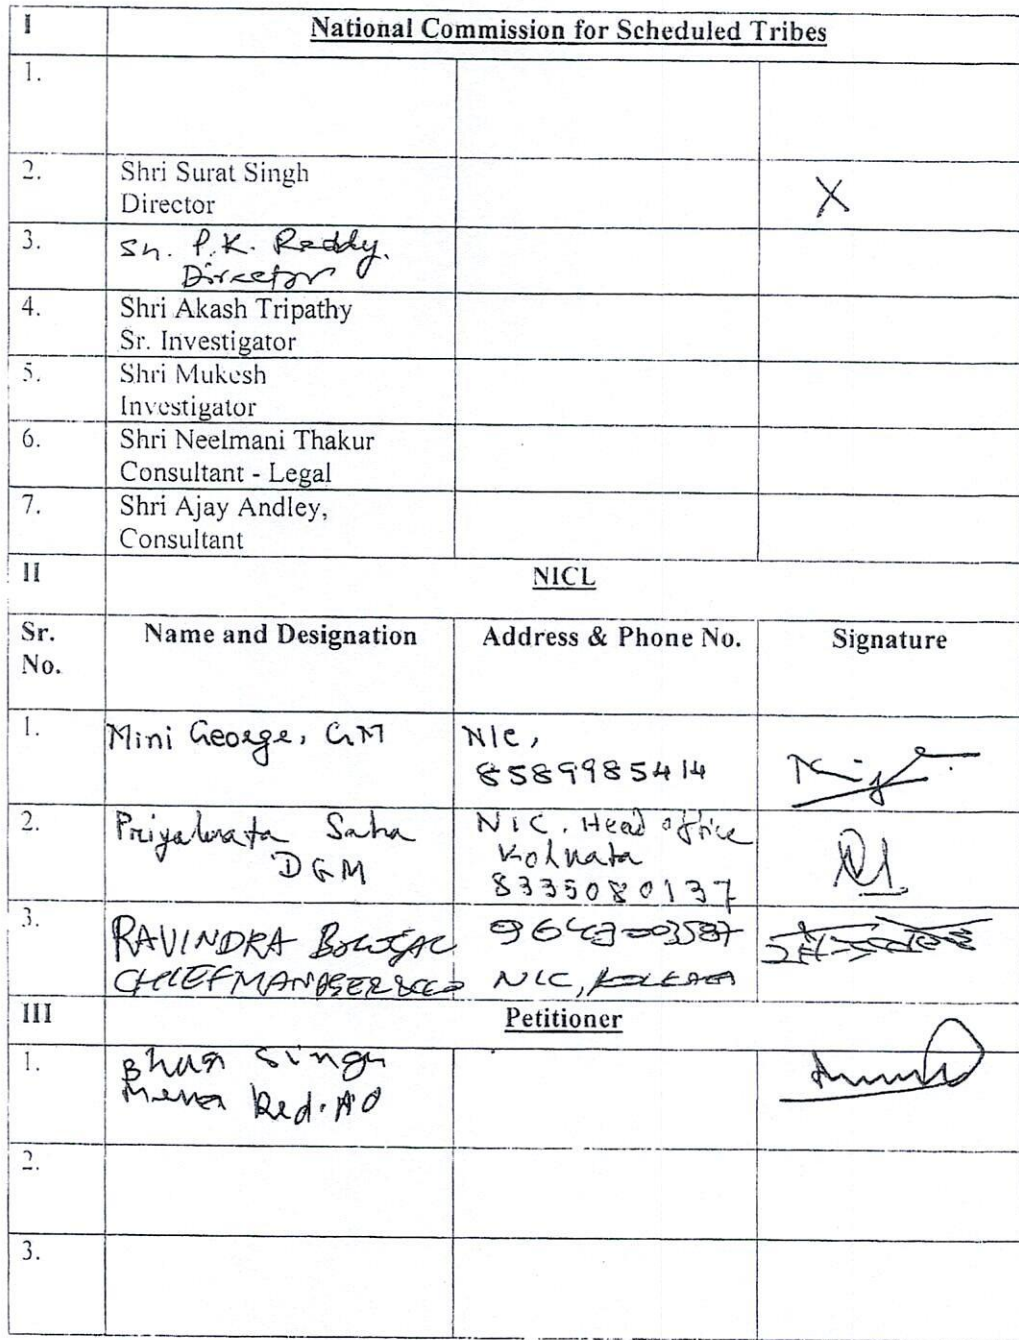 I National Commission for Scheduled Tribes
1.
2. Shri Surat Singh
Director
X
3. Sh. P.K. Reddy.
Director
4. Shri Akash Tripathy
Sr. Investigator
5. Shri Mukesh
Investigator
6. Shri Neelmani Thakur
Consultant - Legal
7. Shri Ajay Andley,
Consultant
II NICL
Sr. No. Name and Designation Address & Phone No. Signature
1. Mini George, GM NIC,
8589985414
2. Priyabrata Saha NIC, Head office
DGM Kolkata
8335080137
3. RAVINDRA
CHIEF MANAGER NIC,
III Petitioner
1. Singh
Red. AO
2.
3.